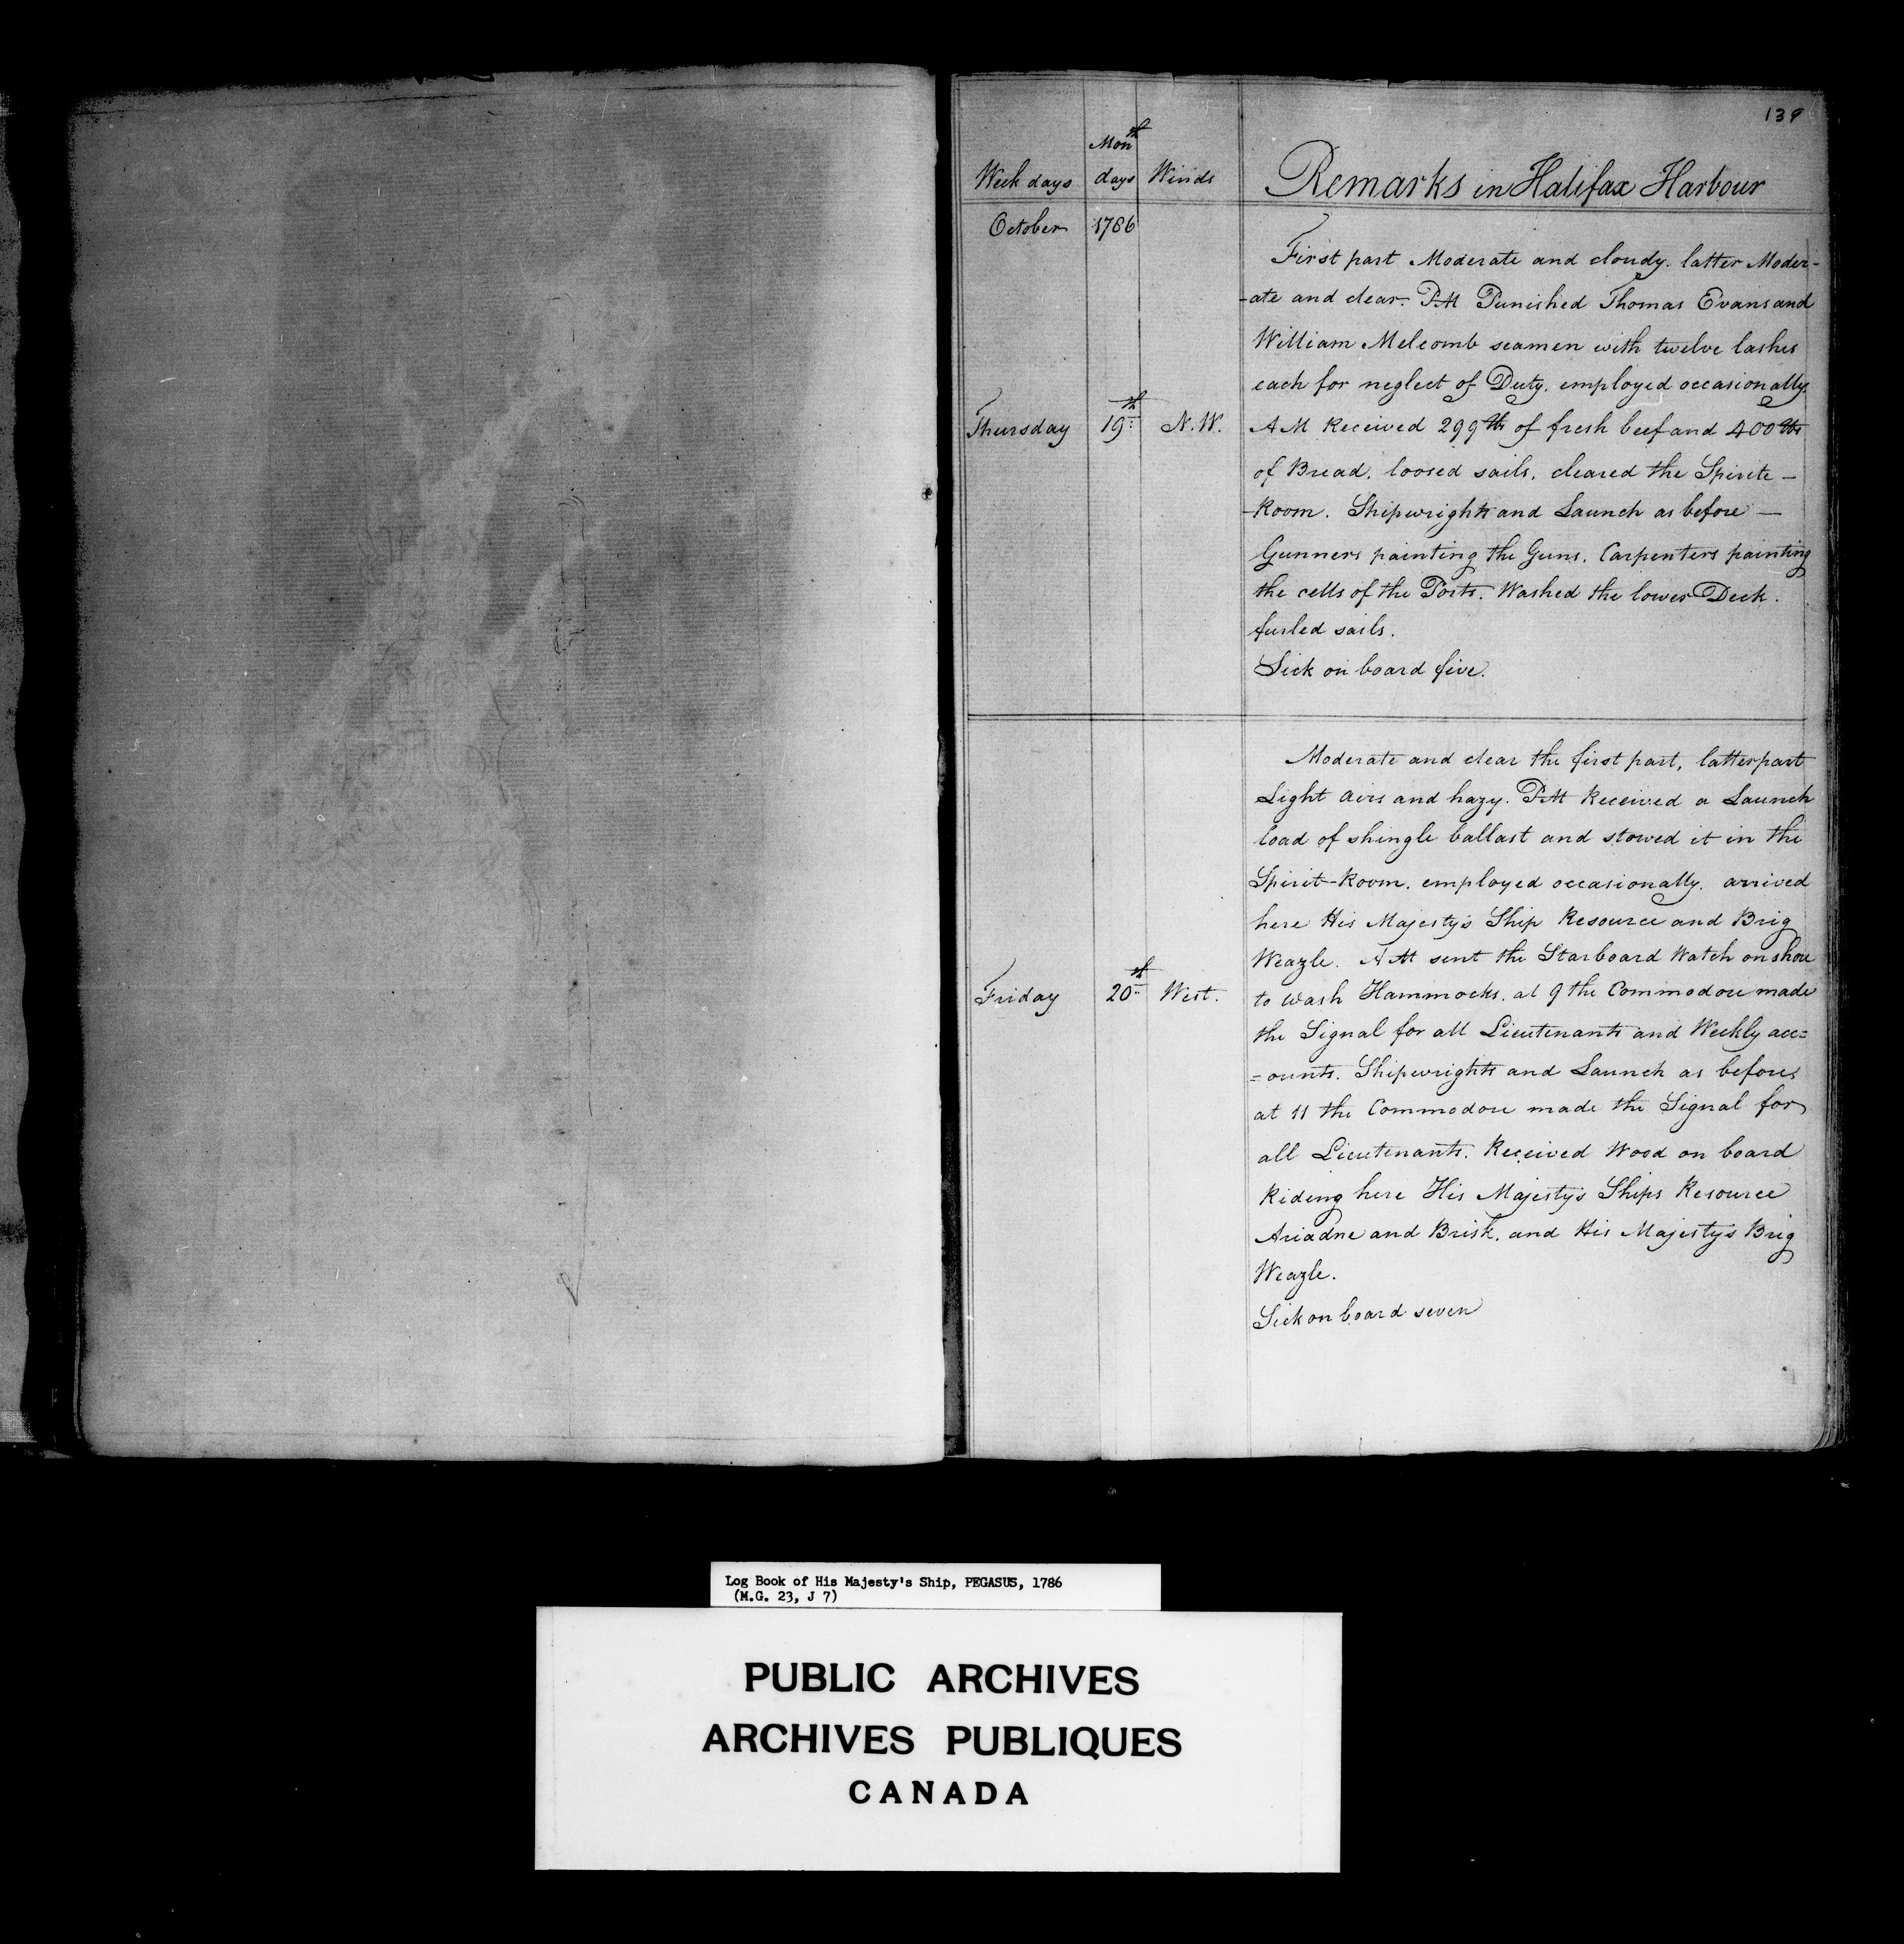 139
Week days Mon.th days Winds Remarks in Halifax Harbour
October 1786
First part Moderate and cloudy. latter Moder-
-ate and clear. PM Punished Thomas Evans and
William Melcomb seamen with twelve lashes
each for neglect of Duty. employed occasionally.
Thursday 19th N.W. AM Received 299 lbs of fresh beef and 400 lbs
of Bread. loosed sails. cleared the Spirite -
-Room. Shipwrights and Launch as before —
Gunners painting the Guns. Carpenters painting
the cells of the Ports. Washed the lower Deck.
furled sails.
Sick on board five.
Moderate and clear the first part, latter part
Light airs and hazy. PM Received a Launch
load of shingle ballast and stowed it in the
Spirit-Room. employed occasionally. arrived
here His Majesty's Ship Resource and Brig
Weazle. AM sent the Starboard Watch on shore
Friday 20th West. to wash Hammocks. at 9 the Commodore made
the Signal for all Lieutenants and Weekly acc=
=ounts. Shipwrights and Launch as before,
at 11 the Commodore made the Signal for
all Lieutenants. Received Wood on board
Riding here His Majesty's Ships Resource
Ariadne and Brisk, and His Majesty's Brig
Weazle.
Sick on board seven
Log Book of His Majesty's Ship, PEGASUS, 1786
(M.G. 23, J 7)
PUBLIC ARCHIVES
ARCHIVES PUBLIQUES
CANADA